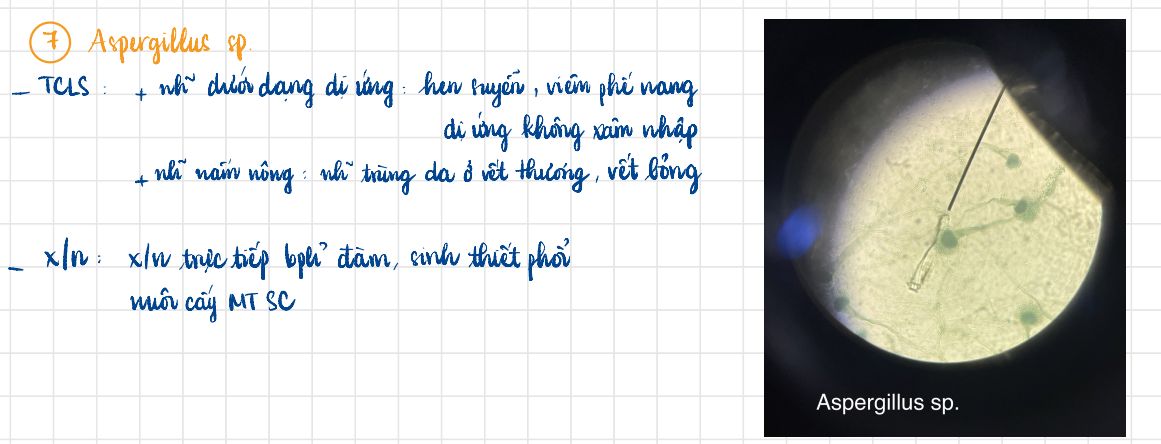 7 Aspergillus sp.
- TCLS : + nh~ dưới dạng dị ứng : hen suyễn, viêm phế nang
dị ứng không xâm nhập
+ nh~ nấm nông : nh~ trùng da ở vết thương, vết bỏng
- x/n : x/n trực tiếp bph~ đàm, sinh thiết phổi
nuôi cấy MT SC
Aspergillus sp.